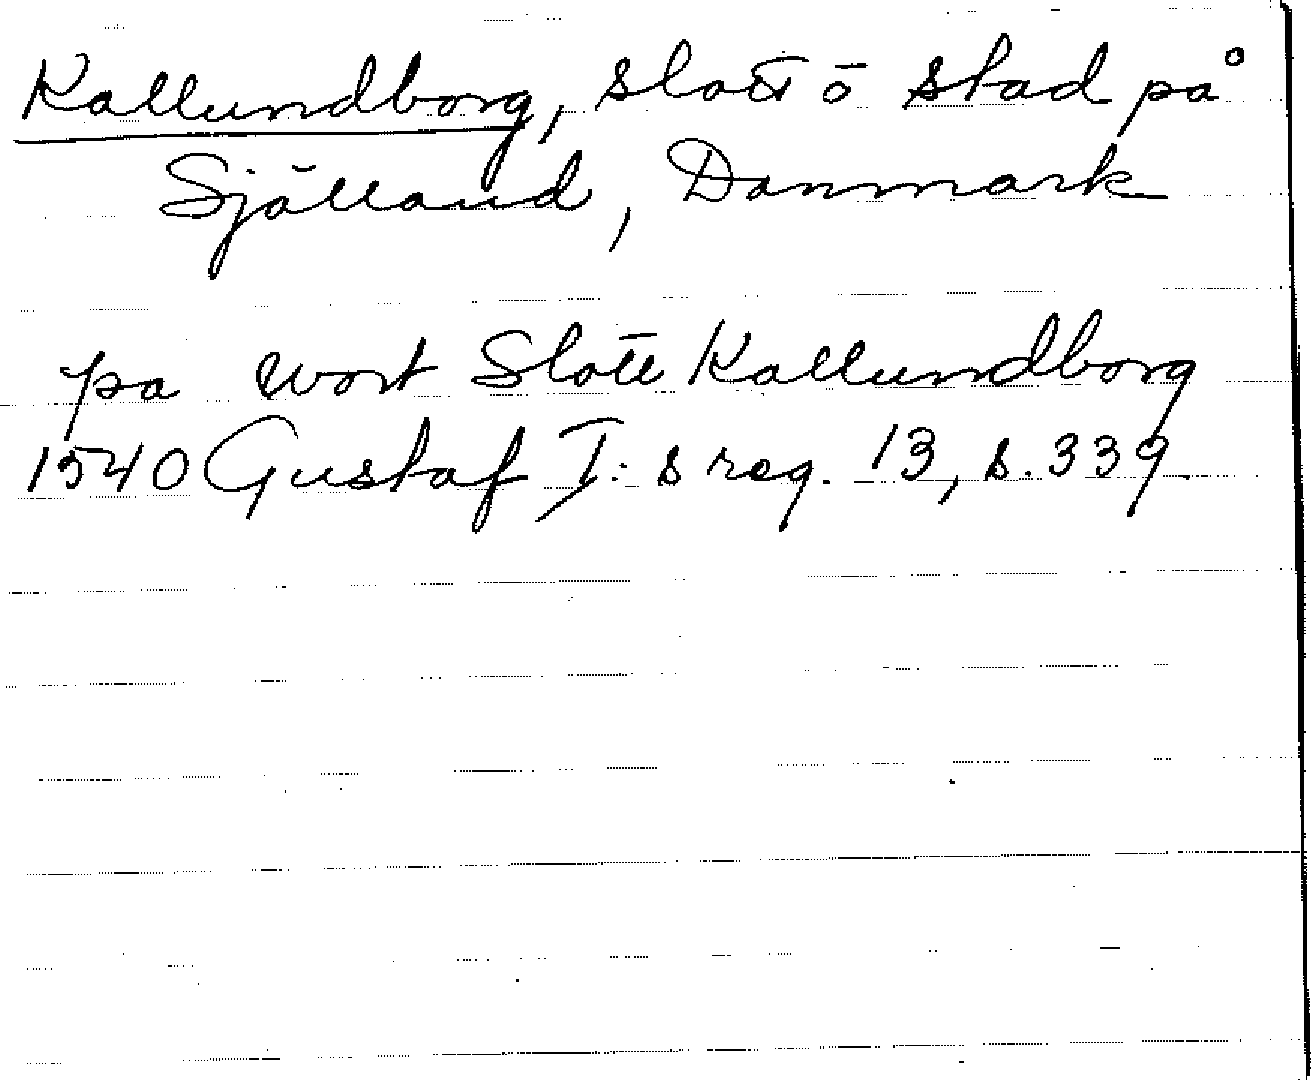 Kallundborg, slott ō stad på
Själland, Danmark
pa wort Slott Kallundborg
1540 Gustaf I:s reg. 13, s. 339